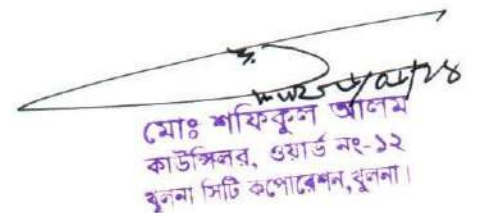 মোঃ শফিকুল আলম
কাউন্সিলর, ওয়ার্ড নং-১২
খুলনা সিটি কর্পোরেশন, খুলনা।